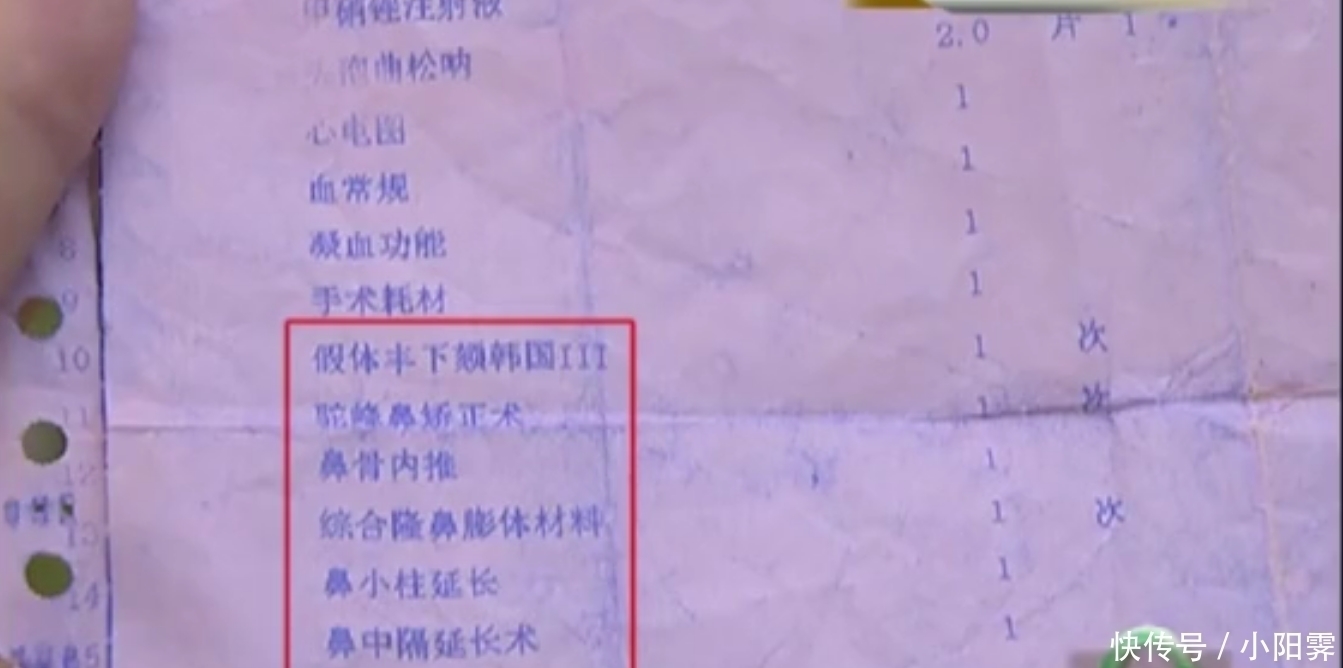 硝锉注射液 2.0 片 1
曲松呐 1
心电图 1
血常规 1
8 凝血功能 1
9 手术耗材
10 假体丰下颏韩国III 1 次
11 驼峰鼻矫正术 1 次
12 鼻骨内推 1
13 综合隆鼻膨体材料 1 次
14 鼻小柱延长 1
5 鼻中隔延长术 1
快传号 / 小阳霁